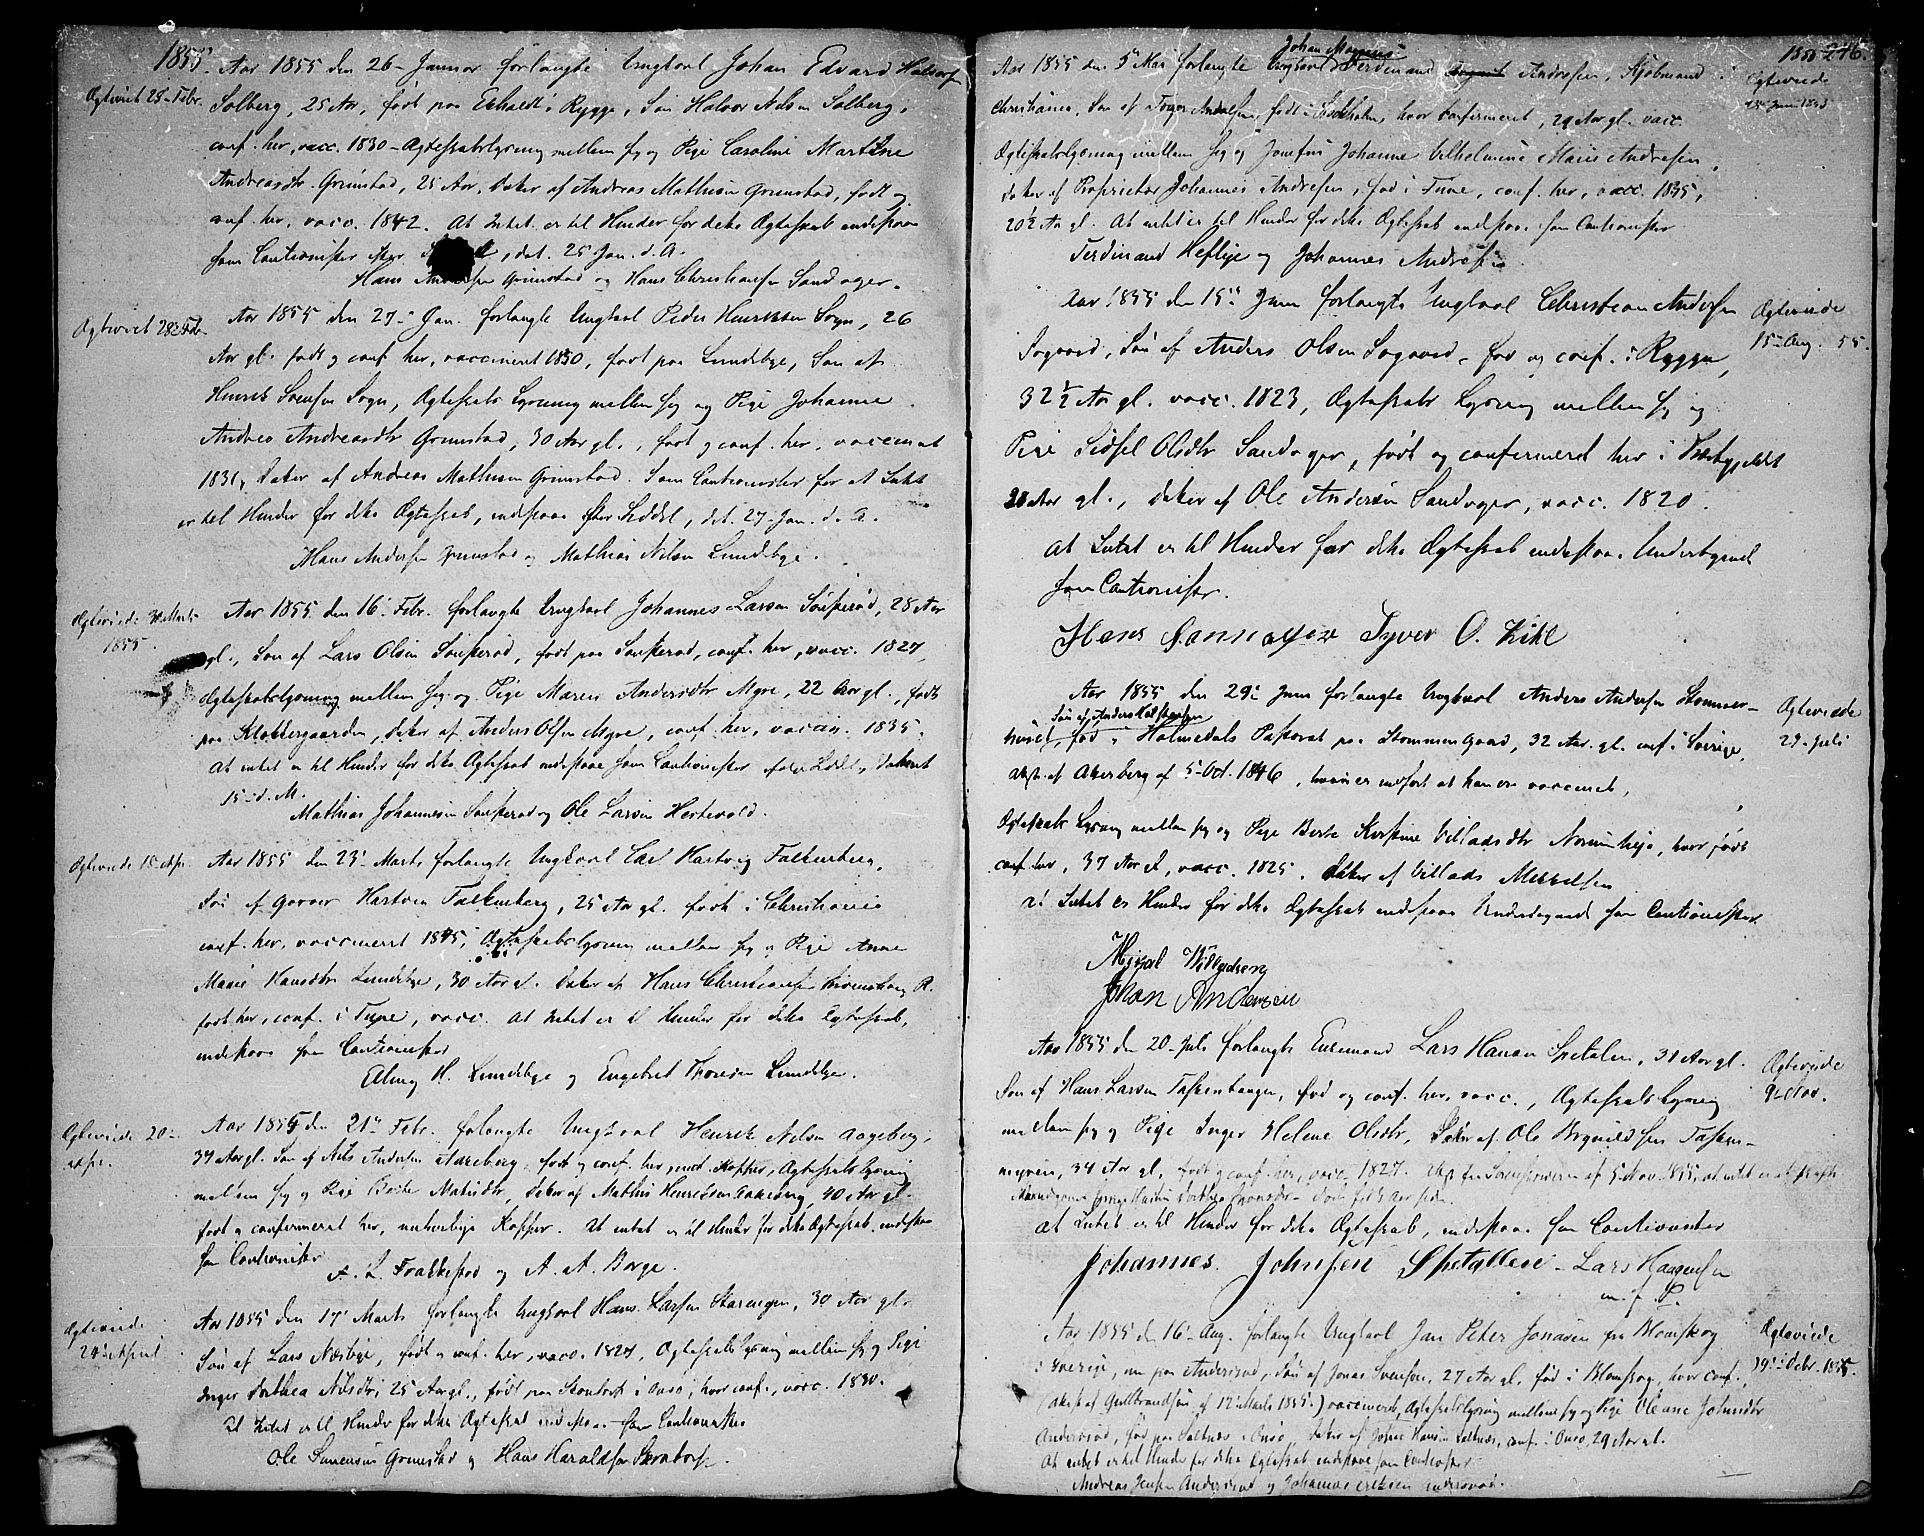 1855.
Aar 1855 den 26 Januar forlangte Ungkarl Johan Edvard Halvorsen
Ægteviet 28 Febr.
Solberg, 25 Aar, født paa Ekholdt i Rygge, Søn Halvor Nilsen Solberg,
conf. her, vacc. 1830 - Ægteskabslysning mellem sig og Pige Caroline Martine
Andreasdtr Grimstad, 25 Aar, Datter af Andreas Mathisen Grimstad, født og
conf. her, vacc. 1842. At Intet er til Hinder for dette Ægteskab indestaae
som Cautionister efter, dat. 25 Jan. d. A.
Hans Andersen Grimstad og Hans Christiansen Sandager.
Ægteviet 28 Feb.
Aar 1855 den 27 Jan. forlangte Ungkarl Peder Henriksen Sogn, 26
Aar gl. født og conf. her, vaccineret 1830, født paa Lundebye, Søn af
Henrik Svensen Sogn, Ægteskabs Lysning mellem sig og Pige Johanne
Andrea Andreasdtr Grimstad, 30 Aar gl., født og conf. her, vaccineret
1831, Datter af Andreas Mathisen Grimstad. Som Cautionister for at Intet
er til Hinder for dette Ægteskab, indestaae efter Seddel, dat. 27 Jan. d. A.
Hans Andersen Grimstad og Mathias Nilsen Lundebye.
Ægteviede Marts
1855.
Aar 1855 den 16 Febr. forlangte Ungkarl Johannes Larsen Sonskerød, 28 Aar
gl., Søn af Lars Olsen Sonskerød, født paa Sonskerød, conf. her, vacc. 1827,
Ægteskabslysning mellem sig og Pige Maren Andersdtr Myre, 22 Aar gl., født
paa Klokkergaarden, Datter af Anders Olsen Myre, conf. her, vaccin. 1835.
At intet er til Hinder for dette Ægteskab indestaae som Cautionister efter Seddel, dateret
15 d. M.
Mathias Johannesen Sonskerød og Ole Larsen Hestevold.
Ægteviede 15 Apr.
Aar 1855 den 23 Marts forlangte Ungkarl Carl Hartvig Falkenberg,
Søn af Hartvig Falkenberg, 25 Aar gl. født i Christiania
conf. her, vaccineret 1845, Ægteskabslysning mellem sig og Pige Anne
Marie Hansdtr Lundebye, 30 Aar gl. Datter af Hans Christiansen
født her, conf. i Tune, vacc. At Intet er til Hinder for dette Ægteskab,
indestaae som Cautionister
Elling H. Lundebye og Engebret Thoresen Lundebye.
Ægteviede 20
Apr.
Aar 1855 den 21 Febr. forlangte Ungkarl Henrik Nilsen Aageberg,
34 Aar gl. Søn af Nils Andersen Aageberg, født og conf. her, Kopper, Ægteskabs Lysning
mellem sig og Pige Berte Mathisdtr, Datter af Mathis Henriksen Aageberg, 40 Aar gl.
født og confirmeret her, naturlige Kopper. At intet er til Hinder for dette Ægteskab indestaae
som Cautionister
A. L. Frakkestad og A. A. Borge.
Ægteviede
24 April
Aar 1855 den 17 Marts forlangte Ungkarl Hans Larsen Starengen, 30 Aar gl.
Søn af Lars Næsbye, født og conf. her, vacc. 1827, Ægteskabs Lysning mellem sig og Pige
Inger Dorthea Nilsdtr, 25 Aar gl., født paa Skondorf i Onsø, hvor conf., vacc. 1830.
At Intet er til Hinder for dette Ægteskab indestaae som Cautionister
Ole Simensen Grimstad og Hans Haraldsen Skondorf.
1855 246.
Johan Magnus
Aar 1855 den 5 Mai forlangte Ungkarl Ferdinand August Andresen, Kjøbmand i
Ægteviede
Juni 1855
Christiania, Søn af Andresen, født i Stockholm, hvor confirmeret, 29 Aar gl. vacc.
Ægteskabslysning mellem sig og Jomfru Johanne Vilhelmine Marie Andresen
Datter af Proprietær Johannes Andresen, fød i Tune, conf. her, vacc. 1835,
20½ Aar gl. At intet er til Hinder for dette Ægteskab indestaae som Cautionister
Ferdinand Heftye og Johannes Andresen
Aar 1855 den 15 Juni forlangte Ungkarl Christian Andersen
Ægteviede
15 Aug. 55.
Sogaard, Søn af Anders Olsen Sogaard, fød og conf. i Rygge,
32½ Aar gl. vacc. 1823, Ægteskabs Lysning mellem sig og
Pige Sidsel Olsdtr Sandager, født og confirmeret her i Præstegjeldet
Aar gl., Datter af Ole Andersen Sandager, vacc. 1820.
At Intet er til Hinder for dette Ægteskab indestaae Undertegnede
som Cautionister.
Hans Iver O. Kihl
Aar 1855 den 29 Juni forlangte Ungkarl Anders Andersen Stommer-
Ægteviede
29 Juli
Søn af Anders
huset, fød i Holmedals Pastorat paa Stommen Gaard, 32 Aar gl. conf. i Sverige,
Attest af Akerberg af 5 Oct. 1846, hvori er anført at han er vaccineret,
Ægteskabs Lysning mellem sig og Pige Berte Kirstine Villadsdtr Normheje, hvor født
conf. her, 37 Aar gl, vacc. 1825. Datter af Villads Mikkelsen
At Intet er Hinder for dette Ægteskab indestaae Undertegnede som Cautionister
Johan Andersen
Aar 1855 den 20 Juli forlangte Enkemand Lars Hansen Spetalen, 31 Aar gl.
Ægteviede
9 Nov.
Søn af Hans Larsen Taskenhaugen, fød og conf. her, vacc., Ægteskabs Lysning
mellem sig og Pige Inger Helene Olsdtr, Datter af Ole Brynildsen Tasken-
haugen, 34 Aar gl., født og conf. her, vacc. 1827.
At Intet er til Hinder for dette Ægteskab, indestaae som Cautionister
Johannes Johnsen Spetallen - Lars Haagensen
m. f. P.
Aar 1855 den 16 Aug. forlangte Ungkarl Jan Peter Jonasen fra Blomskog
Ægteviede
19 Octbr. 1855.
i Sverige, nu paa Andersrød, Søn af Jonas Svensen, 27 Aar gl. fød i Blomskog, hvor conf.
(Attest af Gullbrandsen af 12 Marts 1855.) vaccineret, Ægteskabslysning mellem sig og Pige Oleane Johnsdtr
Andersrød, fød paa Saltnes i Onsø, Datter af John Hansen Saltnes, conf. i Onsø, 29 Aar gl.
At intet er til Hinder for dette Ægteskab indestaae som Cautionister
Andreas Jensen Andersrød og Johannes Eriksen Andersrød.